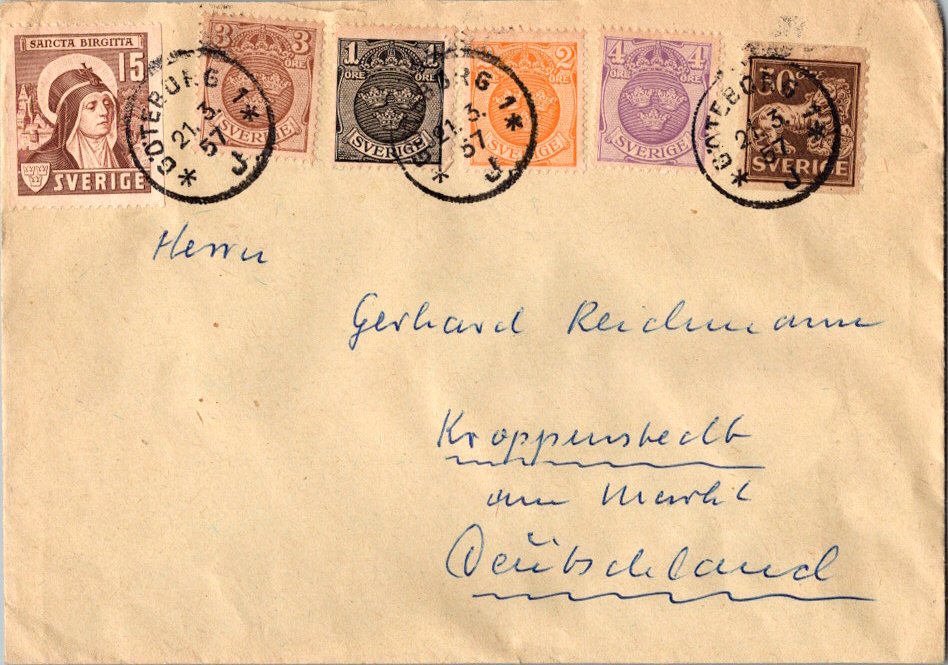 SANCTA BIRGITTA
15
SVERIGE
3 3
ÖRE ÖRE
SVERIGE
1 1
ÖRE ÖRE
SVERIGE
2
ÖRE
SVERIGE
4 4
ÖRE ÖRE
SVERIGE
SVERIGE
GÖTEBORG 1
21.3.
57
J
BORG 1
21.3.
57
J
GÖTEBORG 1
21.3.
57
J
Herrn
Gerhard Reichmann
Kroppenstedt
am Markt
Deutschland